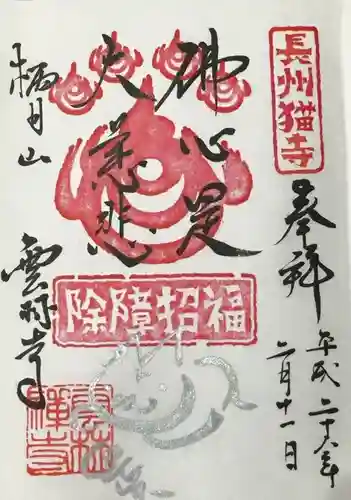 長州猫寺
奉拝
平成二十六年
二月十一日
佛心是
大慈悲
除障招福
栖月山
雲林寺
雲林禅寺